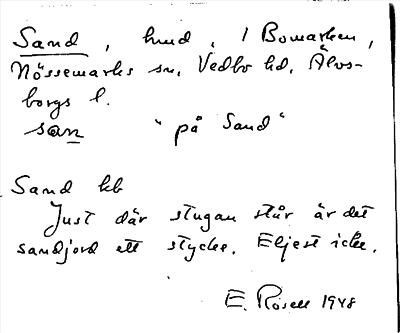 Sand, hmd, / Bomarken,
Nössemarks sn. Vedbo hd. Älvs-
borgs l.
san "på Sand"
Sand hb
Just där stugan står är det
sandjord ett stycke. Eljest icke.
E. Rosell 1948